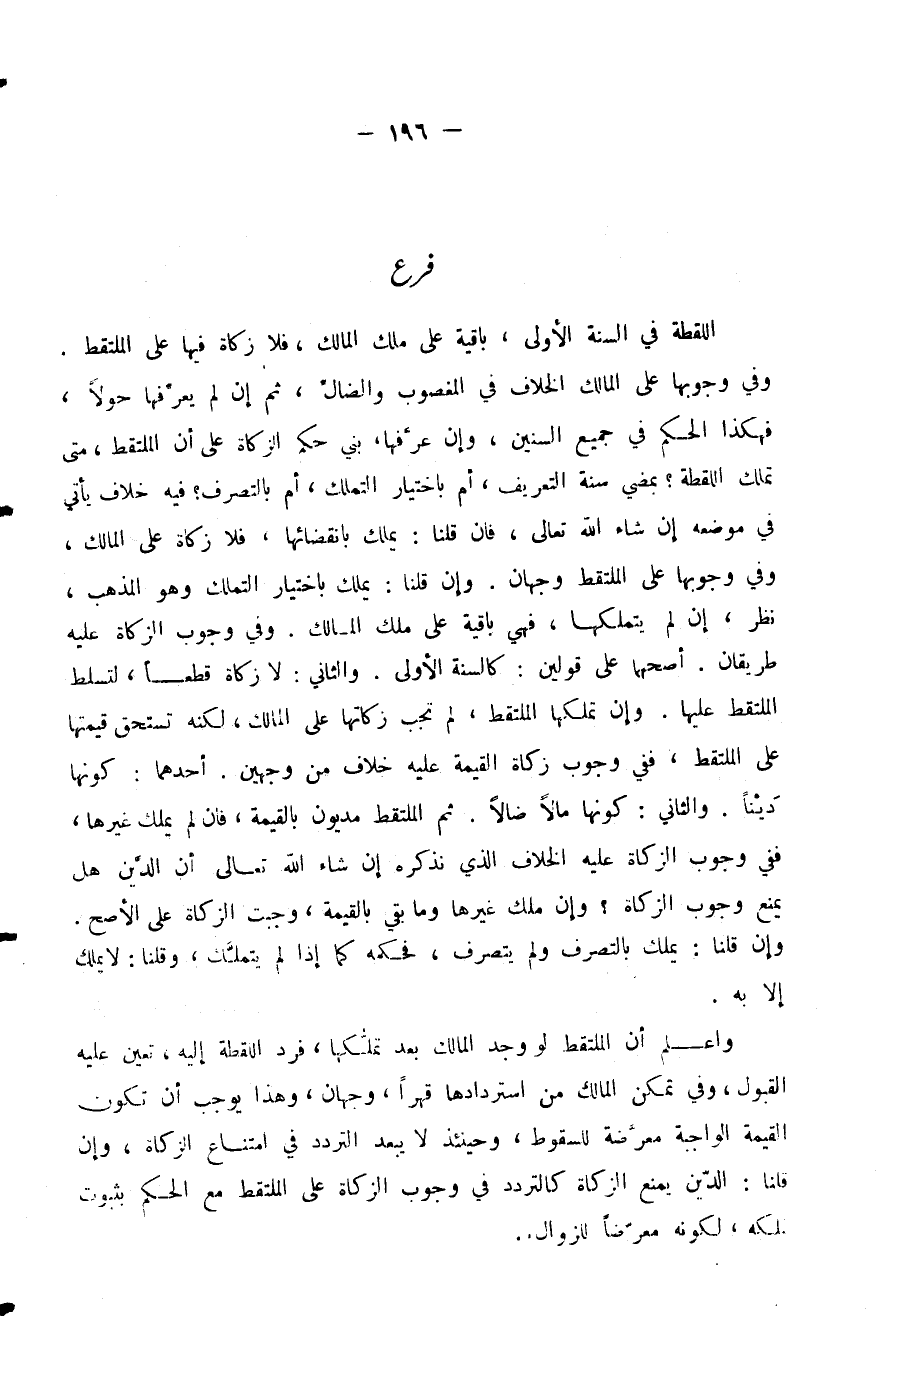 — ١٩٦ —
فرع
اللقطة في السنة الأولى ، باقية على ملك المالك ، فلا زكاة فيها على الملتقط .
وفي وجوبها على المالك الخلاف في المغصوب والضالّ ، ثم إن لم يعرّفها حولاً ،
فهكذا الحكم في جميع السنين ، وإن عرَّفها، بني حكم الزكاة على أن الملتقط ، متى
تملك اللقطة ؟ بمضي سنة التعريف ، أم باختيار التملك ، أم بالتصرف؟ فيه خلاف يأتي
في موضعه إن شاء الله تعالى ، فان قلنا : يملك بانقضائها ، فلا زكاة على المالك ،
وفي وجوبها على الملتقط وجهان . وإن قلنا : يملك باختيار التملك وهو المذهب ،
نظر ، إن لم يتملكها ، فهي باقية على ملك المالك . وفي وجوب الزكاة عليه
طريقان . أصحها على قولين : كالسنة الأولى . والثاني : لا زكاة قطعاً ، لتسلط
الملتقط عليها . وإن تملكها الملتقط ، لم تجب زكاتها على المالك ، لكنه تستحق قيمتها
على الملتقط ، ففي وجوب زكاة القيمة عليه خلاف من وجهين . أحدهما : كونها
دَيْناً . والثاني : كونها مالاً ضالاً . ثم الملتقط مديون بالقيمة ، فان لم يملك غيرها ،
ففي وجوب الزكاة عليه الخلاف الذي نذكره إن شاء الله تعالى أن الدَّين هل
يمنع وجوب الزكاة ؟ وإن ملك غيرها وما بقي بالقيمة ، وجبت الزكاة على الأصح .
وإن قلنا : يملك بالتصرف ولم يتصرف ، فحكمه كما إذا لم يتملَّك ، وقلنا : لا يملك
إلا به .
واعلم أن الملتقط لو وجد المالك بعد تملُّكها ، فرد اللقطة إليه ، تعين عليه
القبول ، وفي تمكن المالك من استردادها قهراً ، وجهان ، وهذا يوجب أن تكون
القيمة الواجبة معرَّضة للسقوط ، وحينئذ لا يبعد التردد في امتناع الزكاة ، وإن
قلنا : الدّين يمنع الزكاة كالتردد في وجوب الزكاة على الملتقط مع الحكم بثبوت
ملكه ، لكونه معرّضاً للزوال..